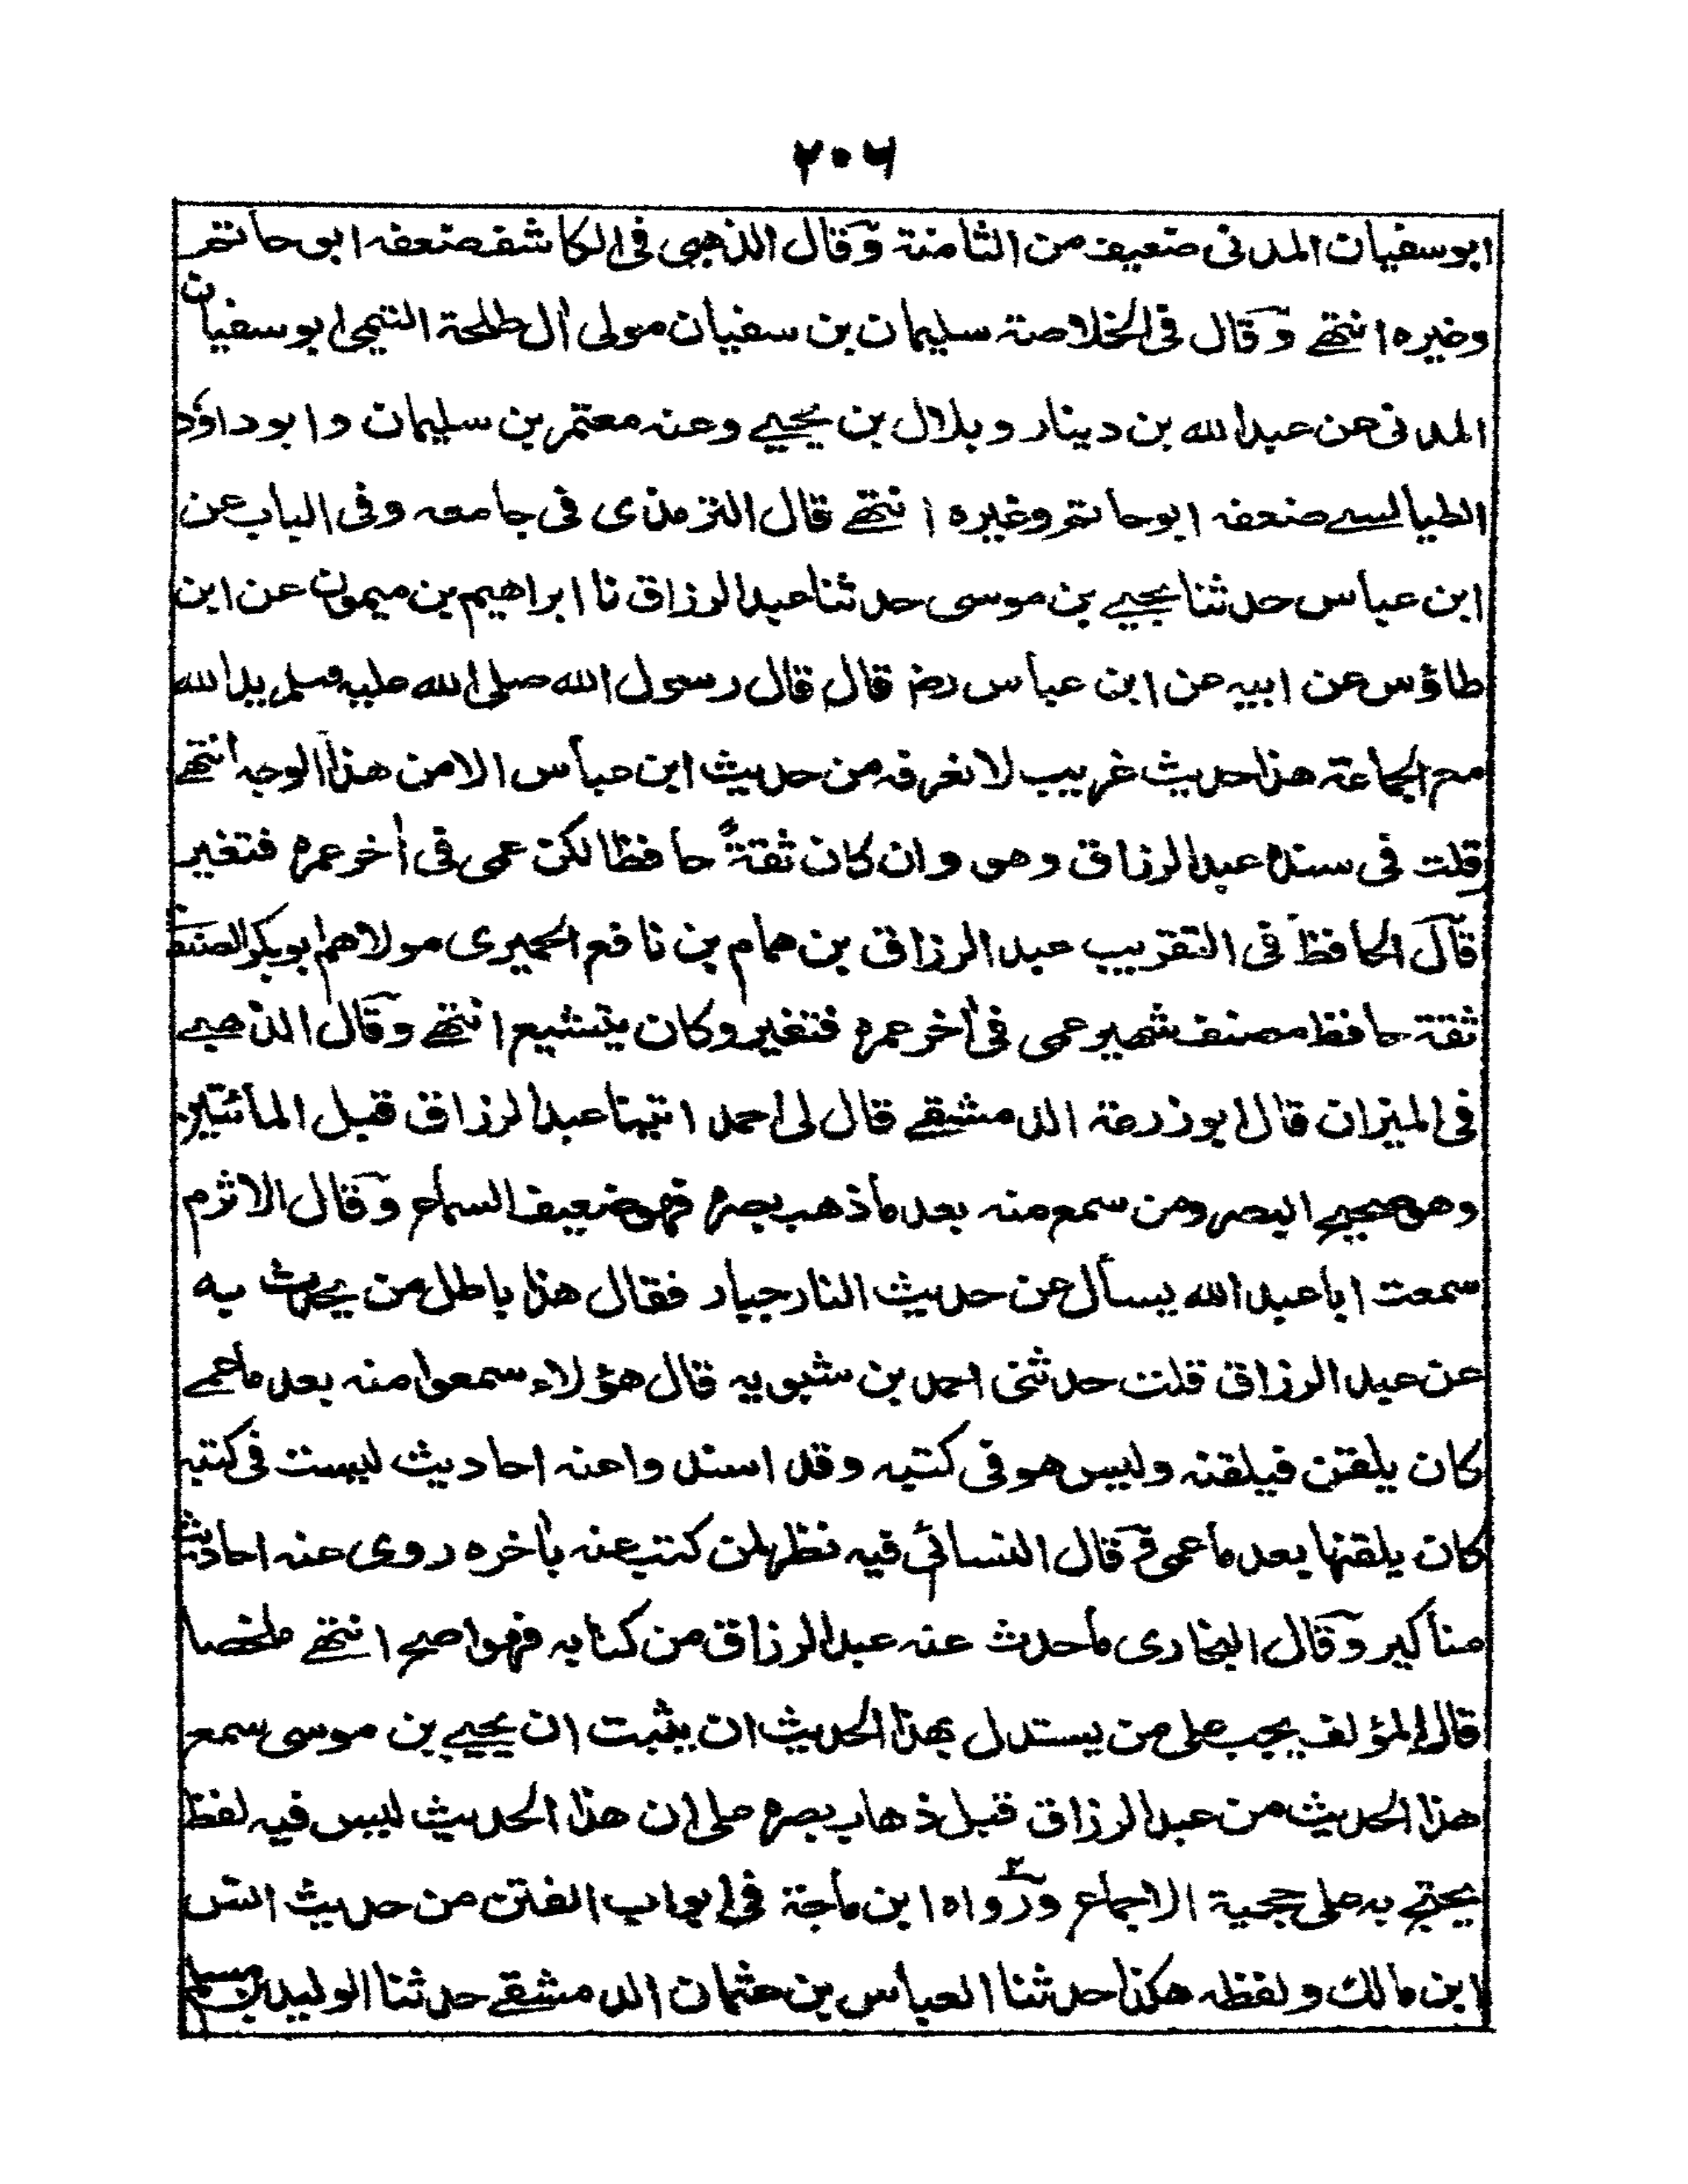 ٢٠٦
ابوسفيان المدنى ضعيف من الثامنة وقال الذهبى فى الكاشف ضعفه ابو حاتم
وغيره انتهے وقال فى الخلاصة سليمان بن سفيان مولى اٰل طلحة التيمى ابو سفيان
المدنى عن عبدالله بن دينار وبلال بن يحيے وعنه معتمر بن سليمان وابو داؤد
الطيالسے ضعفه ابوحاتم وغيره انتهے قال الترمذى فى جامعه وفى الباب عن
ابن عباس حدثنا يحيے بن موسى حدثنا عبدالرزاق نا ابراهيم بن ميمون عن ابن
طاؤس عن ابيه عن ابن عباس رضـ قال قال رسول الله صلى الله عليه وسلم يدالله
مع الجماعة هذا حديث غريب لا نعرفه من حديث ابن عباس الا من هذا الوجه انتهے
قلت فى سنده عبدالرزاق وهو وان كان ثقةً حافظا لكن عمى فى اٰخر عمره فتغير
قال الحافظ فى التقريب عبد الرزاق بن همام بن نافع الحميرى مولاهم ابوبكر الصنعـ
ثقة حافظ مصنف شهير عمى فى اٰخر عمره فتغير وكان يتشيع انتهے وقال الذهبے
فى الميزان قال ابو زرعة الدمشقے قال لى احمد اتينا عبدالرزاق قبل المائتين
وهو صحيح البصر ومن سمع منه بعد ما ذهب بصره فهو ضعيف السماع وقال الاثرم
سمعت ابا عبد الله يسأل عن حديث النار جبار فقال هذا باطل من يحدث به
عن عبد الرزاق قلت حدثنى احمد بن شبويه قال هؤلاء سمعوا منه بعد ما عمے
كان يلقن فيلقنه وليس هو فى كتبه وقد اسندوا عنه احاديث ليست فى كتبه
كان يلقنها بعد ما عمى وقال النسائى فيه نظر لمن كتب عنه باٰخره روى عنه احاديث
مناكير وقال البخارى ما حدث عنه عبدالرزاق من كتابه فهو اصح انتهے ملخصا
قال المؤلف يجب على من يستدل بهذا الحديث ان يثبت ان يحيے بن موسى سمع
هذا الحديث من عبدالرزاق قبل ذهاب بصره على ان هذا الحديث ليس فيه لفظ
يحتج به على حجية الاجماع ورواه ابن ماجة فى ابواب الفتن من حديث انس
ابن مالك ولفظه هكذا حدثنا العباس بن عثمان الدمشقے حدثنا الوليد بن مسلم